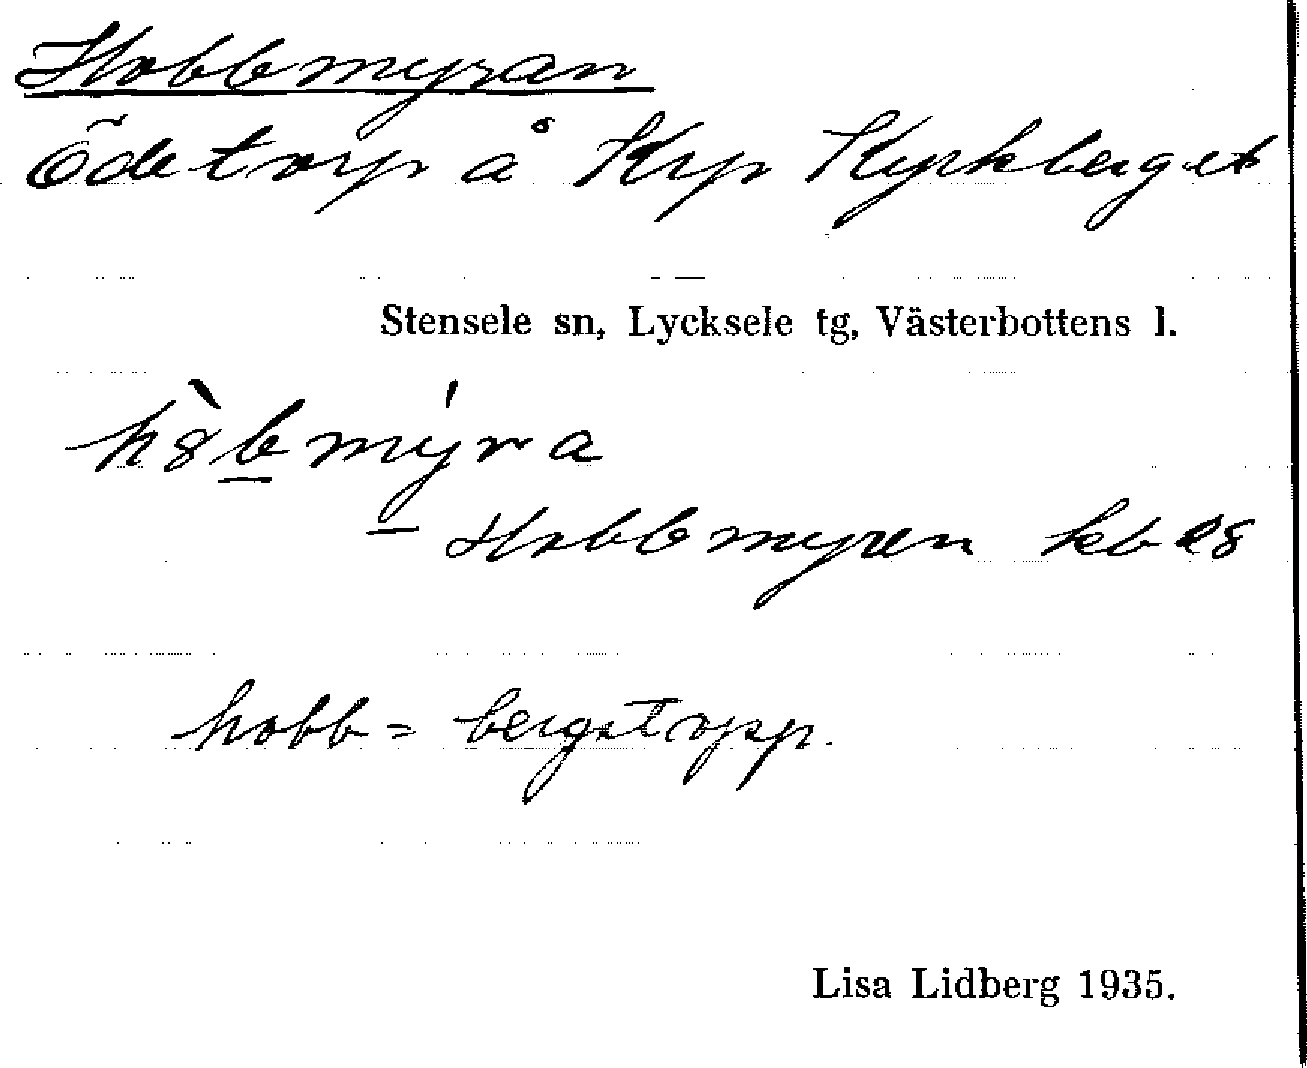 Hobbmyran
Ödetorp å Krp Kyrkberget
Stensele sn, Lycksele tg, Västerbottens l.
hòbmýra
– Hobbmyren kb
hobb = bergstopp.
Lisa Lidberg 1935.